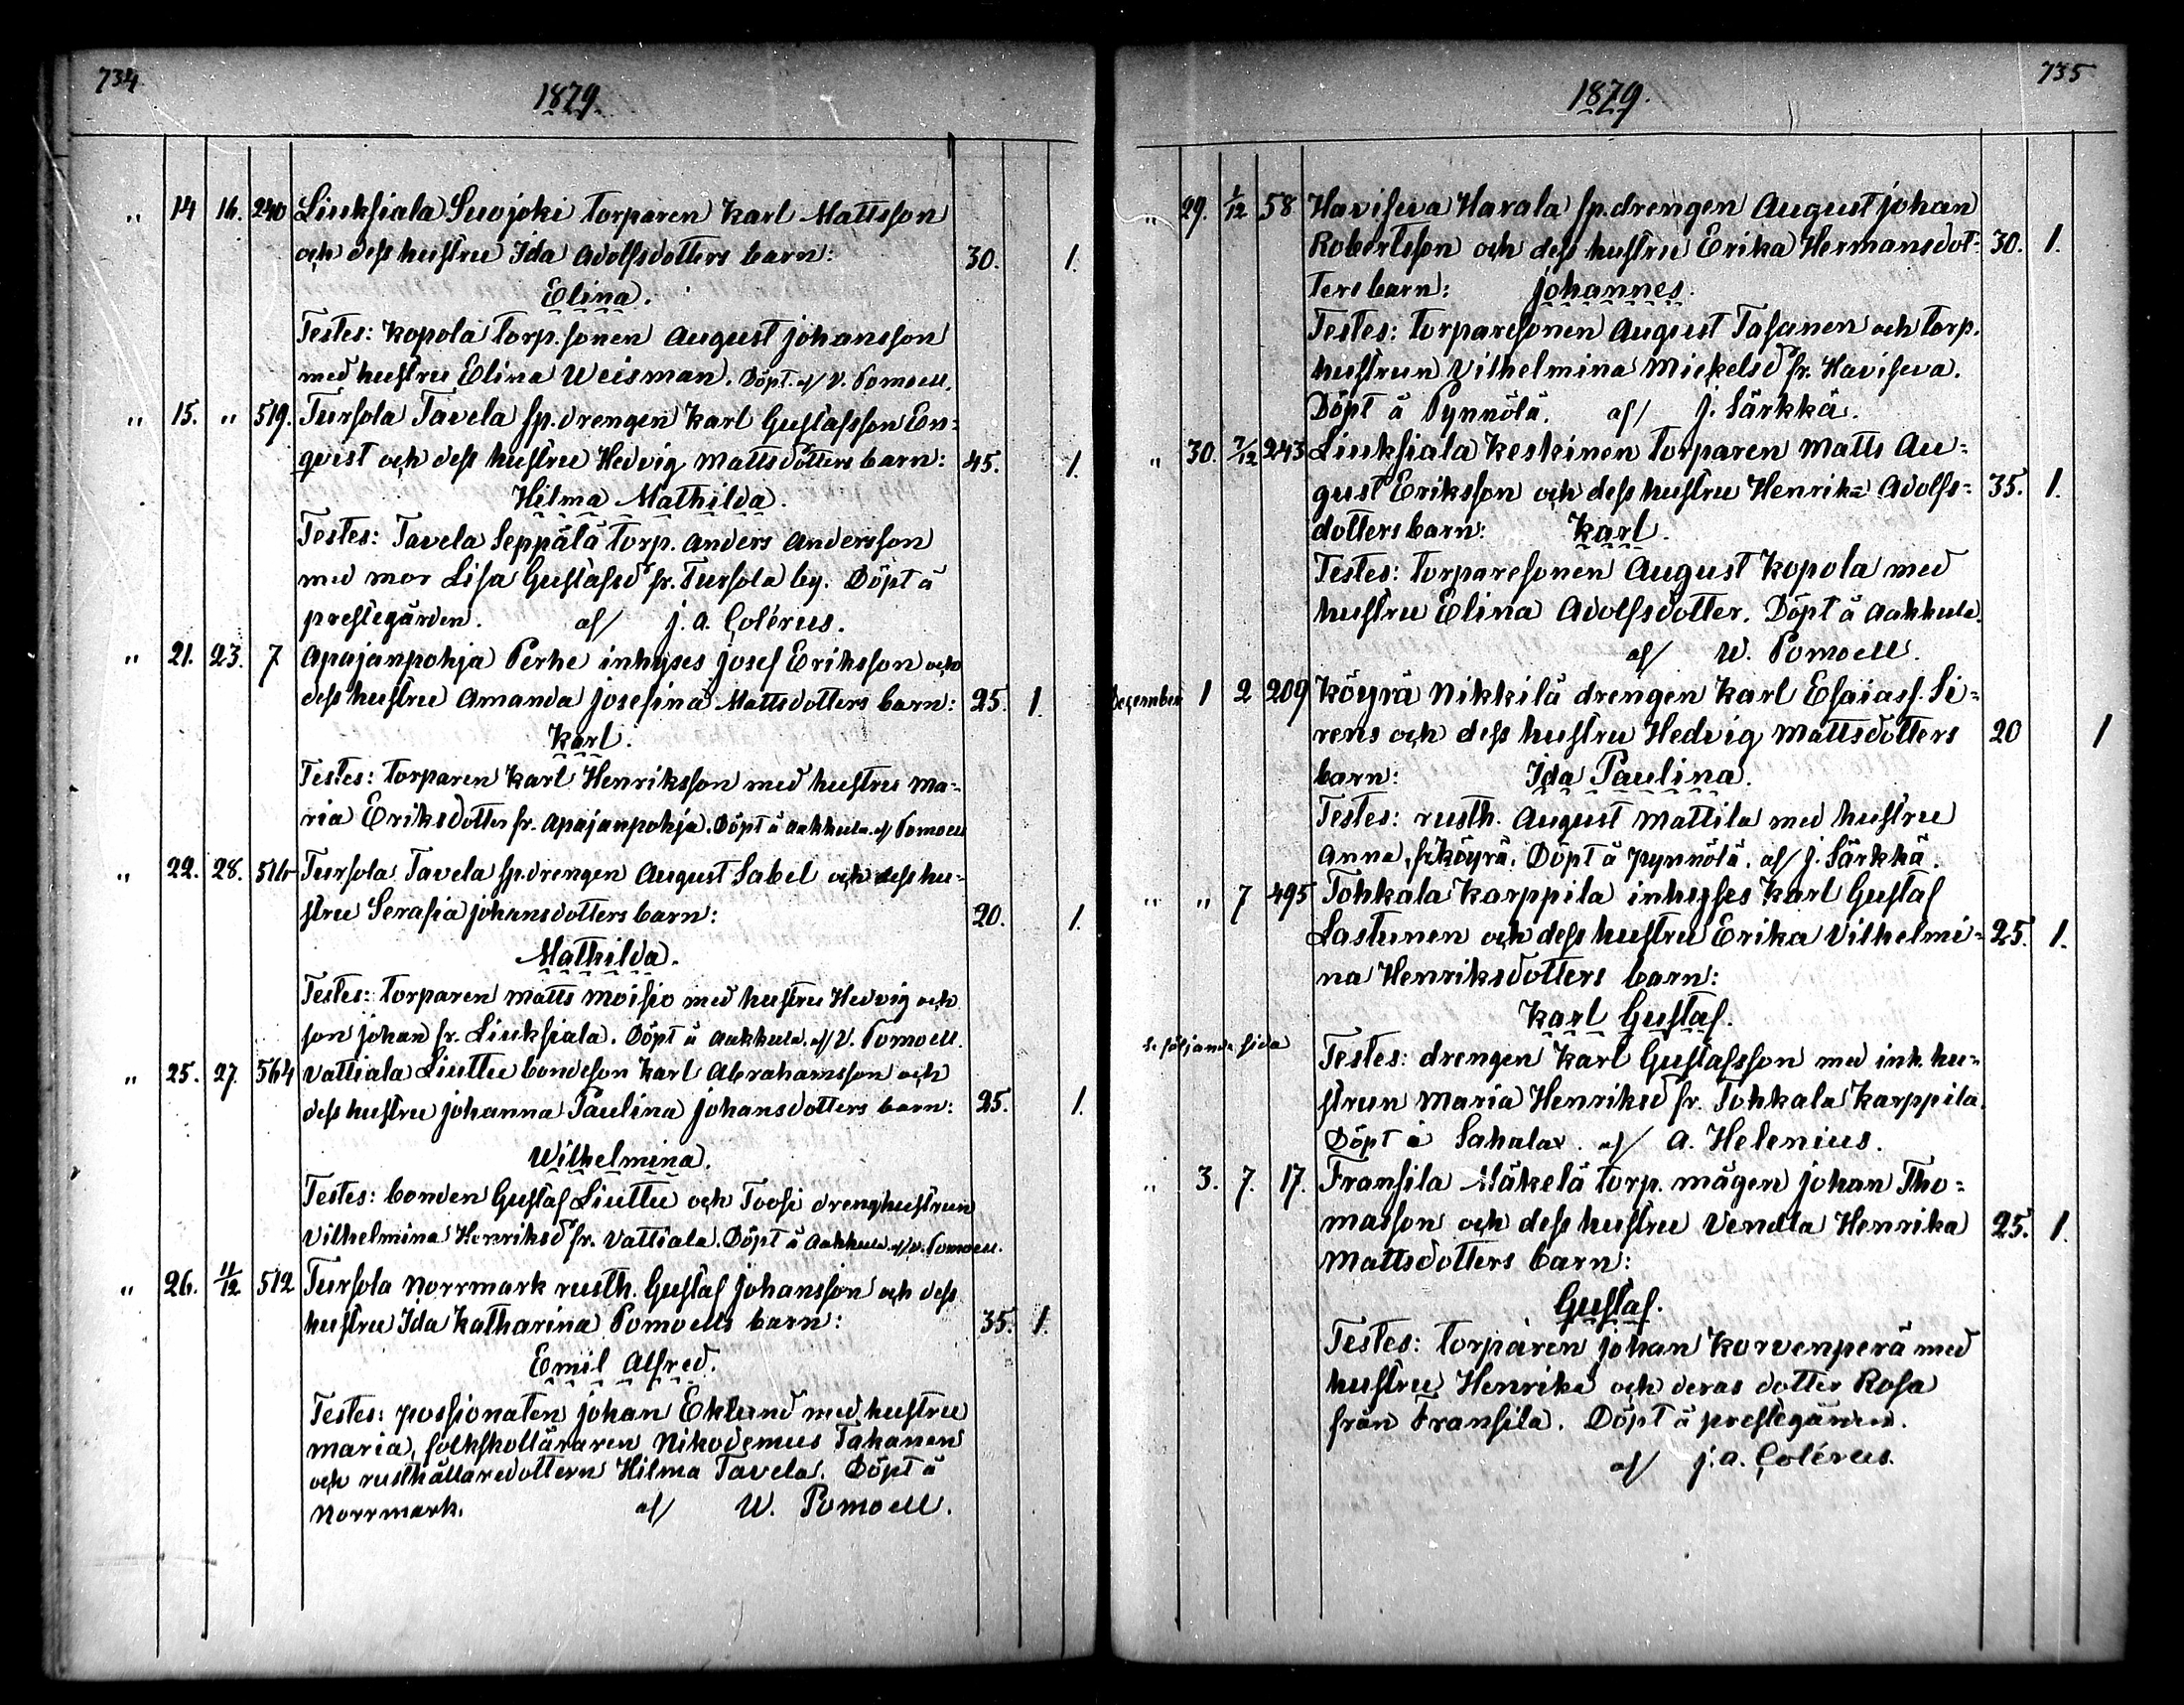 734
1879.
" 14 16. 240 Liuksiala Suojoki torparen Karl Mattsson
och dess hustru Ida Adolfsdotters barn: 30. 1.
Elina.
Testes: Kopola torp.sonen August Johansson
med hustru Elina Weisman. Döpt af V. Pomoell.
" 15. " 519. Tursola Tavela sp.drengen Karl Gustafsson En=
qvist och dess hustru Hedvig Mattsdotters barn: 45. 1.
Hilma Mathilda.
Testes: Tavela Seppälä torp. Anders Andersson
med mor Lisa Gustafsd fr. Tursola by. Döpt å
prestegården. af J. A. Colérus.
" 21. 23. 7 Apajanpohja Perhe inhyses Josef Eriksson och
dess hustru Amanda Josefina Mattsdotters barn: 25. 1.
Karl.
Testes: torparen Karl Henriksson med hustru Ma=
ria Eriksdotter fr. Apajanpohja. Döpt å Aakkula. af Pomoell
" 22. 28. 516 Tursola Tavela sp.drengen August Sabel och dess hu=
stru Serafia Johansdotters barn: 20. 1.
Mathilda.
Testes: torparen Matts Moisio med hustru Hedvig och
son Johan fr. Liuksiala. Döpt å Aakkula. af V. Pomoell.
" 25. 27. 564 Vattiala Liuttu bondeson Karl Abrahamsson och
dess hustru Johanna Paulina Johansdotters barn: 25. 1.
Wilhelmina.
Testes: bonden Gustaf Liuttu och Toosi drenghustrun
Vilhelmina Henriksd fr. Vattiala. Döpt å Aakkula af V. Pomoell.
" 26. 11/12 512 Tursola Norrmark rusth. Gustaf Johansson och dess
hustru Ida Katharina Pomoells barn: 35. 1.
Emil Alfred.
Testes: possionaten Johan Eklund med hustru
Maria, folkskolläraren Nikodemus Takanen
och rusthållaredottern Hilma Tavela. Döpt å
Norrmark. af W. Pomoell.
735
1879.
" 29. 1/12 58 Havisua Harala sp.drengen August Johan
Robertsson och dess hustru Erika Hermansdot= 30. 1.
ters barn: Johannes.
Testes: torparesonen August Tasanen och torp.
hustrun Vilhelmina Mickelsd fr. Havisua.
Döpt å Pynnölä. af J. Särkkä.
" 30. 7/12 243 Liuksiala Keskinen torparen Matts Au=
gust Eriksson och dess hustru Henrika Adolfs= 35. 1.
dotters barn: Karl.
Testes: torparesonen August Kopola med
hustru Elina Adolfsdotter. Döpt å Aakkula.
af W. Pomoell.
December 1 2 209 Köyrä Nikkilä drengen Karl Esaiass. Si=
rens och dess hustru Hedvig Mattsdotters 20 1
barn: Ida Paulina.
Testes: rusth. August Mattila med hustru
Anna, fr Köyrä. Döpt å Pynnölä. af J. Särkkä.
" " 7 495 Tohkala Karppila inhyses Karl Gustaf
Lastunen och dess hustru Erika Vilhelmi= 25. 1.
na Henriksdotters barn:
Karl Gustaf.
s. följande sida
Testes: drengen Karl Gustafsson med inh. hu=
strun Maria Henriksd fr. Tohkala Karppila.
Döpt å Sahala. af A. Helenius.
" 3. 7. 17. Fransila Mäkelä torp. mågen Johan Tho=
masson och dess hustru Vendla Henrika 25. 1.
Mattsdotters barn:
Gustaf.
Testes: torparen Johan Korvenperä med
hustru Henrika och deras dotter Rosa
från Fransila. Döpt å prestegården.
af J. A. Colérus.